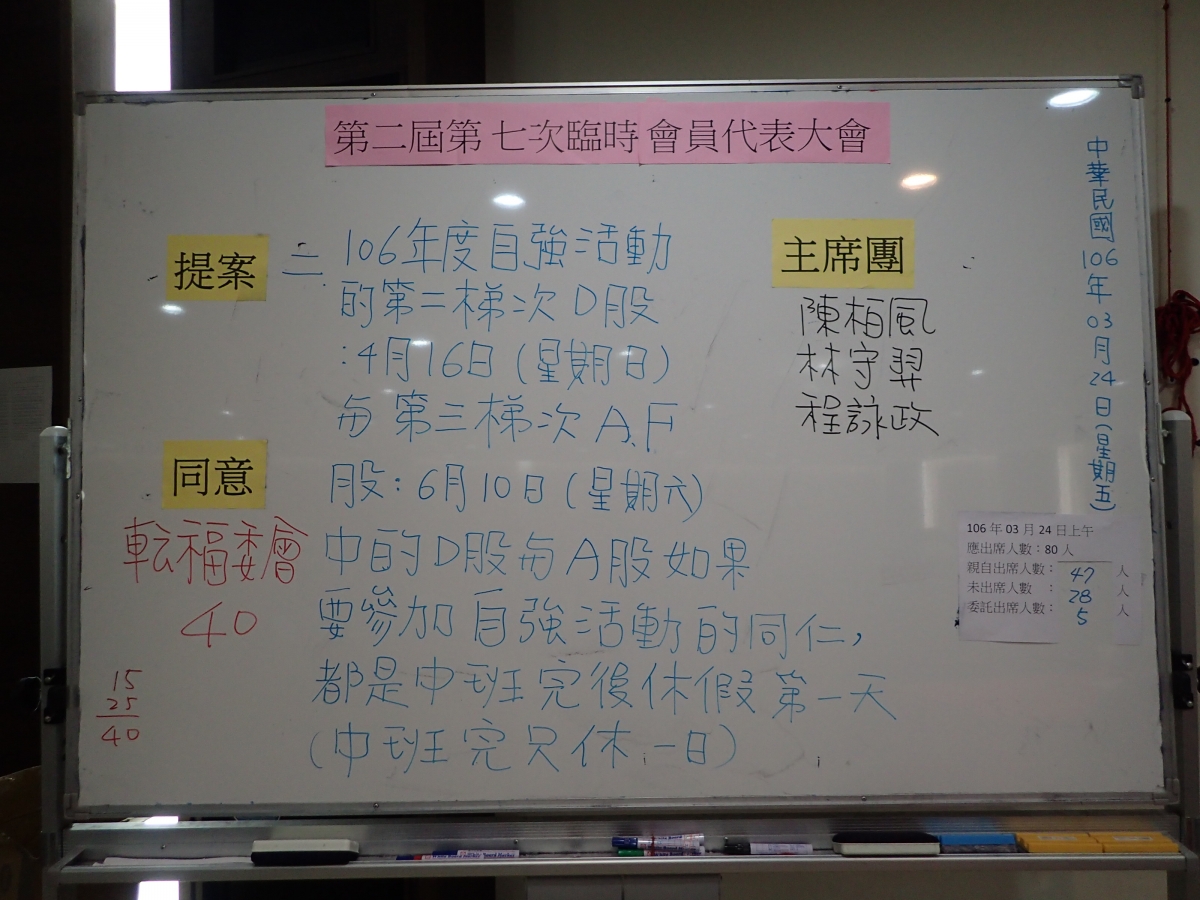 第二屆第七次臨時會員代表大會
提案
二.
106年度自強活動
的第二梯次D股
:4月16日(星期日)
每第三梯次A.F
股:6月10日(星期六)
中的D股每A股如果
要參加自強活動的同仁,
都是中班完後休假第一天
(中班完只休一日)
同意
転福委會
40
15
25
40
主席團
陳栢風
林守羿
程詠政
中華民國106年03月24日(星期五)
106年03月24日上午
應出席人數:80人
親自出席人數:47人
未出席人數:28人
委託出席人數:5人